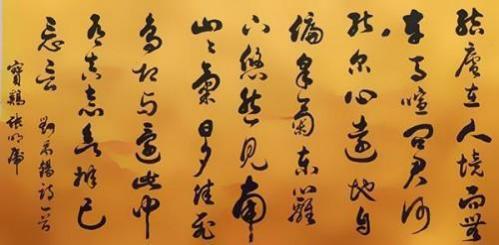 結廬在人境而無
車馬喧问君何
能尔心遠地自
偏采菊東籬
下悠然見南
山々氣日夕佳飛
鳥相与還此中
有真意欲辨已
忘言 劉禹錫詩一首
寶鷄 張